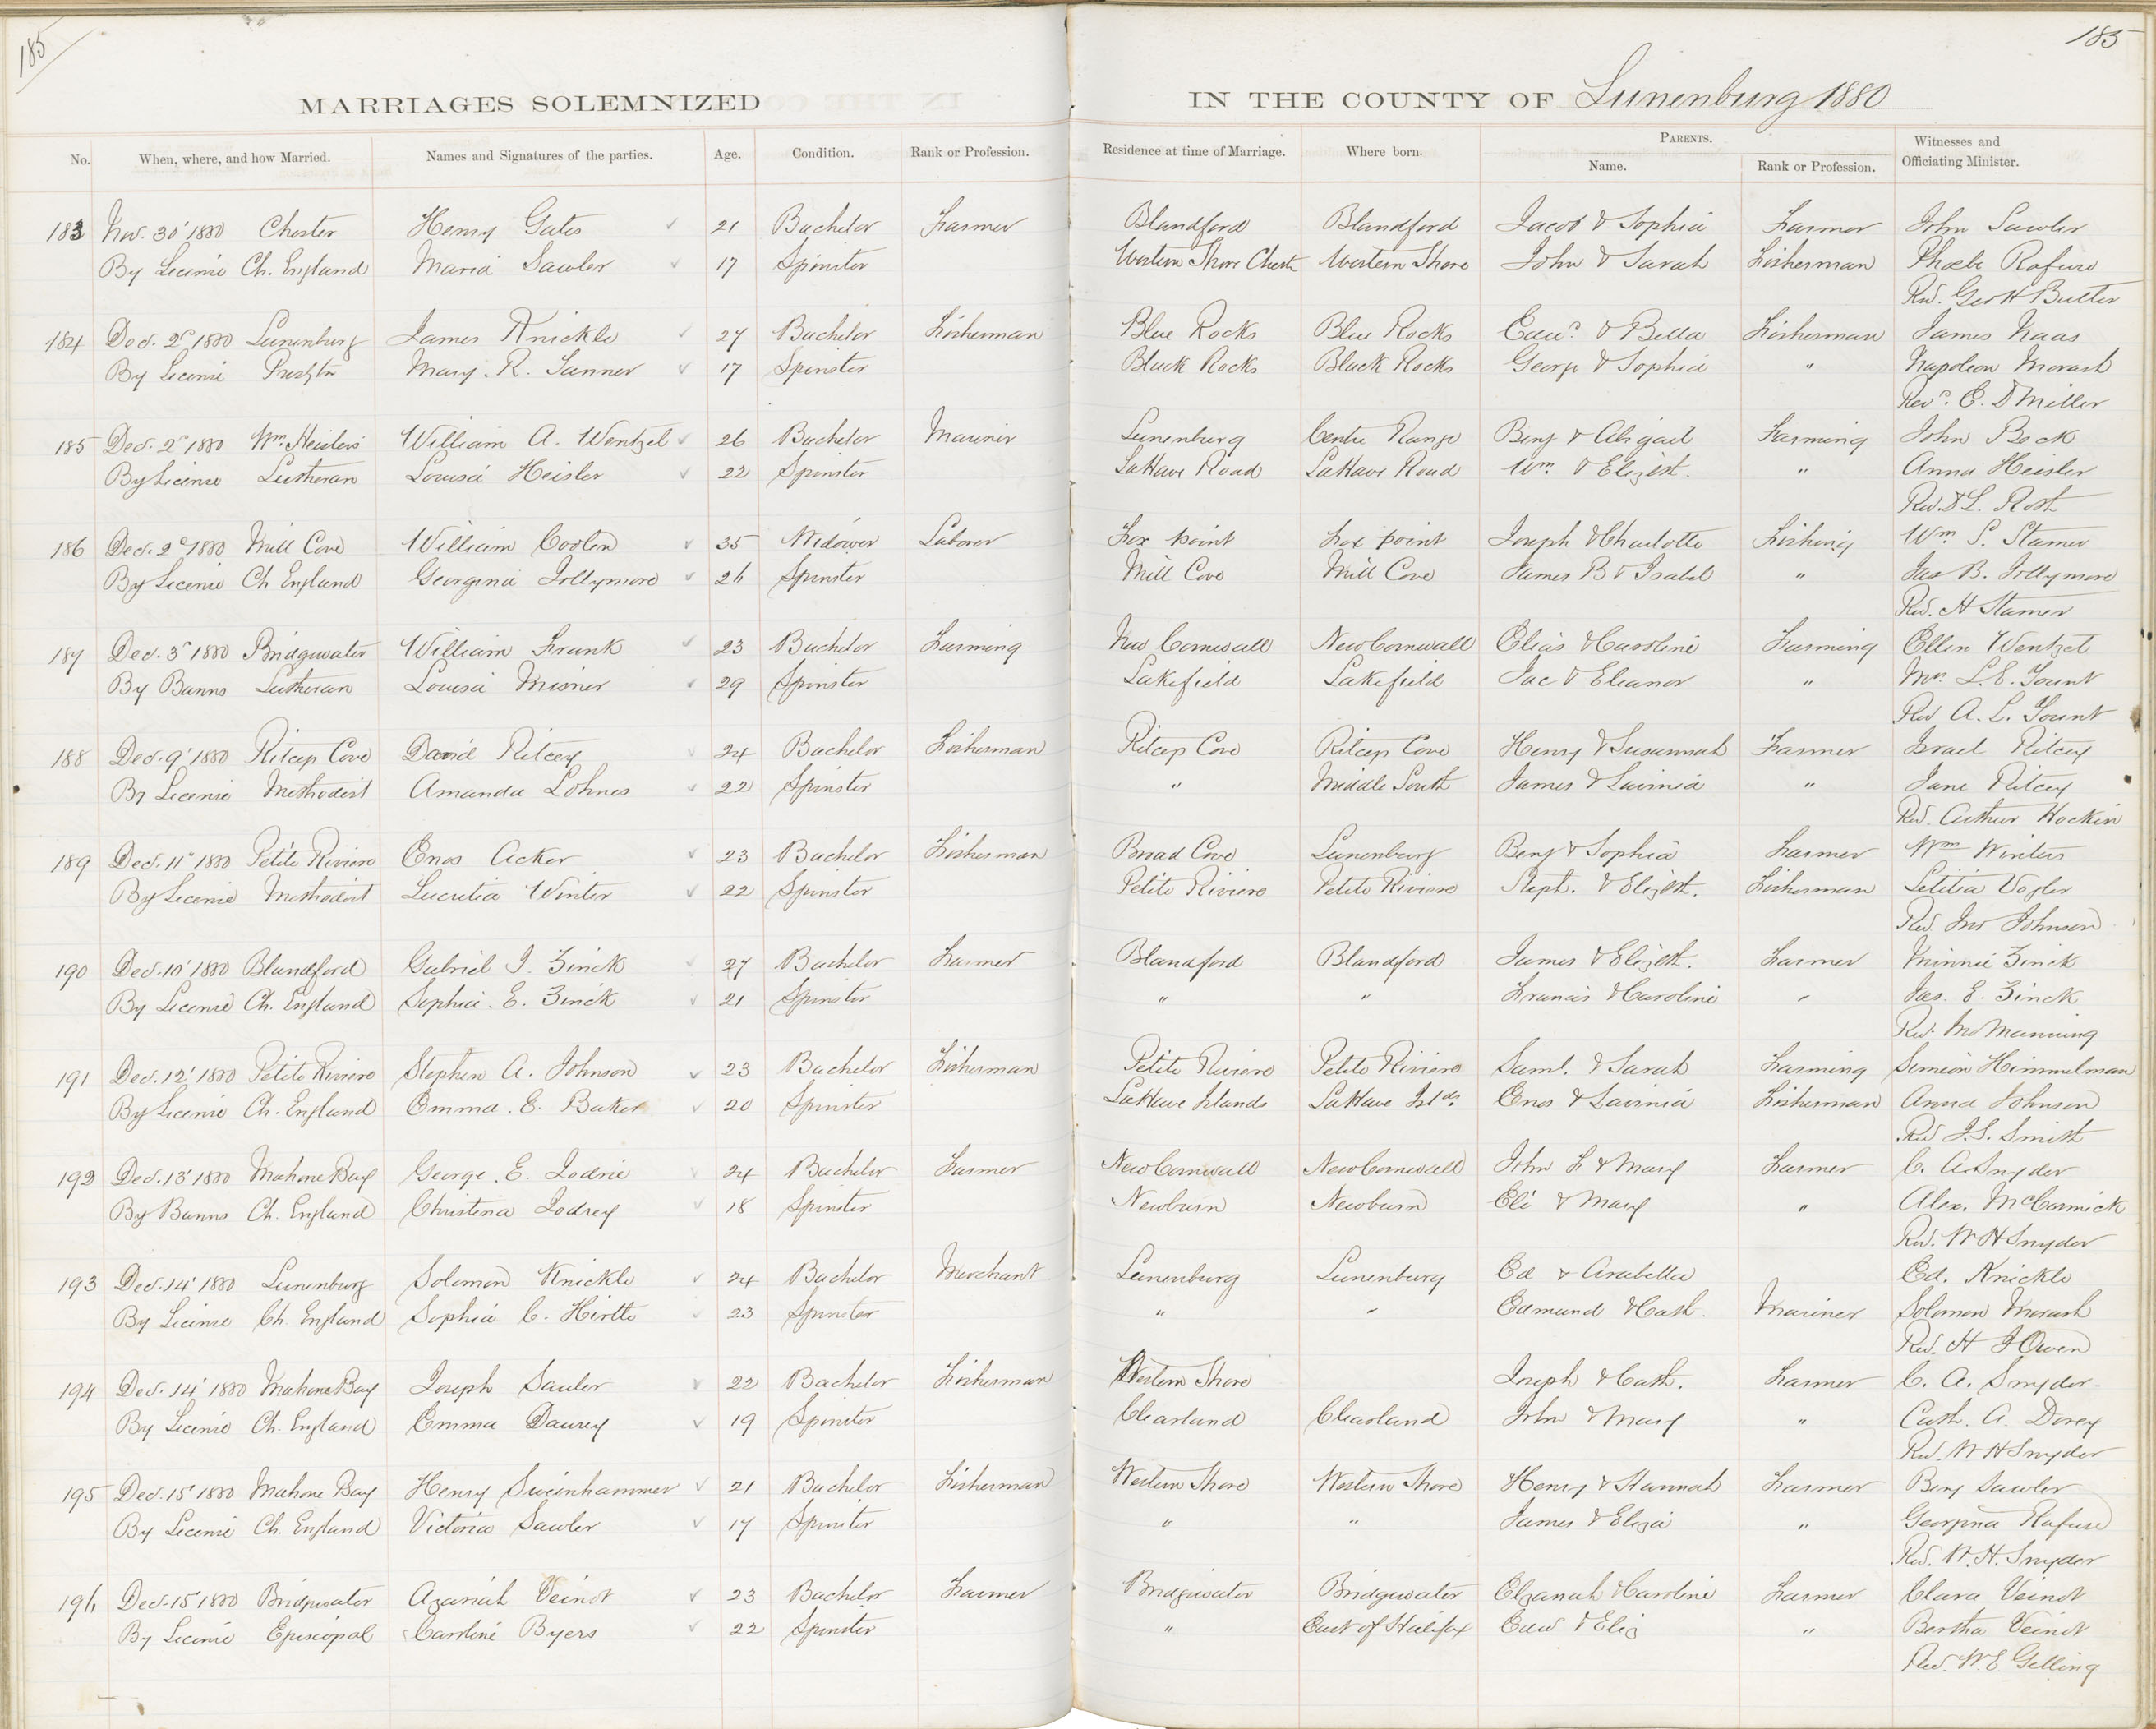 185
185
MARRIAGES SOLEMNIZED IN THE COUNTY OF Lunenburg 1880
No. When, where, and how Married. Names and Signatures of the parties. Age. Condition. Rank or Profession. Residence at time of Marriage. Where born. PARENTS. Name. Rank or Profession. Witnesses and Officiating Minister.
183 Nov. 30' 1880 Chester Henry Gates 21 Bachelor Farmer Blandford Blandford Jacob & Sophia Farmer John Sawler
By License Ch. England Maria Sawler 17 Spinster Western Shore Chestr Western Shore John & Sarah Fisherman Phœbe Rafuse
Rev. Geo H Butler
184 Dec. 2d 1880 Lunenburg James Knickle 27 Bachelor Fisherman Blue Rocks Blue Rocks Edwd. & Bella Fisherman James Naas
By License Presbtn Mary. R. Tanner 17 Spinster Black Rocks Black Rocks George & Sophia " Napoleon Morash
Revd. E. D Miller
185 Dec. 2d 1880 Wm. Heislers William A. Wentzel 26 Bachelor Mariner Lunenburg Centre Range Benj & Abigail Farming John Beck
By License Lutheran Louisa Heisler 22 Spinster LaHave Road LaHave Road Wm. & Elizbt. " Anna Heisler
Rev. D L. Roth
186 Dec. 2d 1880 Mill Cove William Coolen 35 Widower Laborer Fox point Fox point Joseph & Charlotte Fishing Wm S. Stamer
By License Ch England Georgina Jollymore 26 Spinster Mill Cove Mill Cove James B & Isabel " Jas B. Jollymore
Rev. H Stamer
187 Dec. 3d 1880 Bridgewater William Frank 23 Bachelor Farming New Cornwall New Cornwall Elias & Caroline Farming Ellen Wentzel
By Banns Lutheran Louisa Misner 29 Spinster Lakefield Lakefield Jac & Eleanor " Mrs. L. E. Yount
Rev A. L. Yount
188 Dec. 9' 1880 Ritcey Cove David Ritcey 24 Bachelor Fisherman Ritcey Cove Ritcey Cove Henry & Susannah Farmer Israel Ritcey
By License Methodist Amanda Lohnes 22 Spinster " Middle South James & Lavinia " Jane Ritcey
Rev. Arthur Hockin
189 Dec. 11" 1880 Petite Riviere Enos Acker 23 Bachelor Fisherman Broad Cove Lunenburg Benj & Sophia Farmer Wm Winters
By License Methodist Lucretia Winter 22 Spinster Petite Riviere Petite Riviere Steph. & Elizbth. Fisherman Letitia Vogler
Rev. Jno Johnson
190 Dec. 10' 1880 Blandford Gabriel I. Zinck 27 Bachelor Farmer Blandford Blandford James & Elizbth. Farmer Minnie Zinck
By License Ch. England Sophia. E. Zinck 21 Spinster " " Francis & Caroline " Jas. E. Zinck
Rev. Jno Manning
191 Dec. 12' 1880 Petite Riviere Stephen A. Johnson 23 Bachelor Fisherman Petite Riviere Petite Riviere Saml. & Sarah Farming Simeon Himmelman
By License Ch. England Emma. E. Baker 20 Spinster LaHave Islands LaHave Islds. Enos & Lavinia Fisherman Anna Johnson
Rev J. S. Smith
192 Dec. 13' 1880 Mahone Bay George. E. Lodrie 24 Bachelor Farmer New Cornwall New Cornwall John F & Mary Farmer C. A. Snyder
By Banns Ch. England Christina Lodrey 18 Spinster Newburn Newburn Eli & Mary " Alex. McCormick
Rev. W H Snyder
193 Dec. 14' 1880 Lunenburg Solomon Knickle 24 Bachelor Merchant Lunenburg Lunenburg Ed & Arabella Ed. Knickle
By License Ch. England Sophia C. Hirtle 23 Spinster " " Edmund & Cath. Mariner Solomon Morash
Rev. H L Owen
194 Dec. 14' 1880 Mahone Bay Joseph Sawler 22 Bachelor Fisherman Western Shore Joseph & Cath. Farmer C. A. Snyder
By License Ch. England Emma Daurey 19 Spinster Clearland Clearland John & Mary " Cath. A. Dorey
Rev. W H Snyder
195 Dec. 15' 1880 Mahone Bay Henry Swinhammer 21 Bachelor Fisherman Western Shore Western Shore Henry & Hannah Farmer Benj Sawler
By License Ch. England Victoria Sawler 17 Spinster " " James & Eliza " Georgina Rafuse
Rev. W. H. Snyder
196 Dec. 15' 1880 Bridgewater Azariah Veinot 23 Bachelor Farmer Bridgewater Bridgewater Elzanah & Caroline Farmer Clara Veinot
By License Episcopal Caroline Byers 22 Spinster " East of Halifax Edw & Eliz " Bertha Veinot
Rev. W. E. Gelling